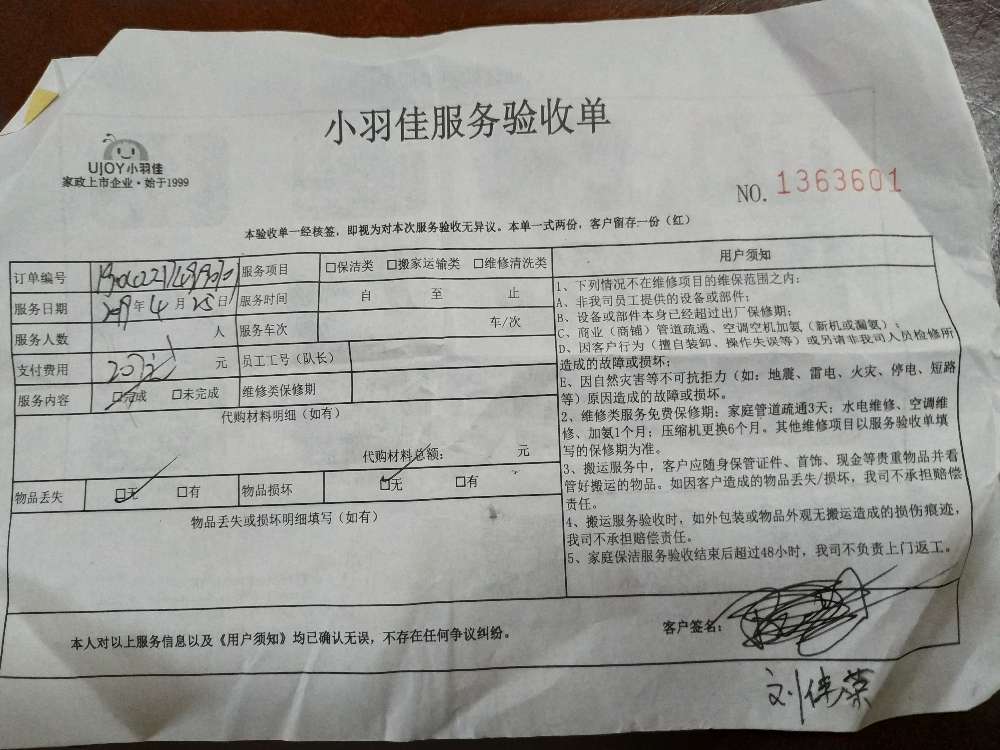 小羽佳服务验收单
UJOY小羽佳
家政上市企业·始于1999
NO. 1363601
本验收单一经核签，即视为对本次服务验收无异议。本单一式两份，客户留存一份（红）
订单编号 服务项目 □保洁类 □搬家运输类 □维修清洗类
服务日期 年 4 月 25 日 服务时间 自 至 止
服务人数 人 服务车次 车/次
支付费用 元 员工工号（队长）
服务内容 □完成 □未完成 维修类保修期
代购材料明细（如有）
代购材料总额： 元
物品丢失 □无 □有 物品损坏 □无 □有
物品丢失或损坏明细填写（如有）
用户须知
1、下列情况不在维修项目的维保范围之内：
A、非我司员工提供的设备或部件；
B、设备或部件本身已经超过出厂保修期；
C、商业（商铺）管道疏通、空调空机加氨（新机或漏氨）；
D、因客户行为（擅自装卸、操作失误等）或另请非我司人员检修所
造成的故障或损坏；
E、因自然灾害等不可抗拒力（如：地震、雷电、火灾、停电、短路
等）原因造成的故障或损坏。
2、维修类服务免费保修期：家庭管道疏通3天；水电维修、空调维
修、加氨1个月；压缩机更换6个月。其他维修项目以服务验收单填
写的保修期为准。
3、搬运服务中，客户应随身保管证件、首饰、现金等贵重物品并看
管好搬运的物品。如因客户造成的物品丢失/损坏，我司不承担赔偿
责任。
4、搬运服务验收时，如外包装或物品外观无搬运造成的损伤痕迹，
我司不承担赔偿责任。
5、家庭保洁服务验收结束后超过48小时，我司不负责上门返工。
本人对以上服务信息以及《用户须知》均已确认无误，不存在任何争议纠纷。
客户签名：